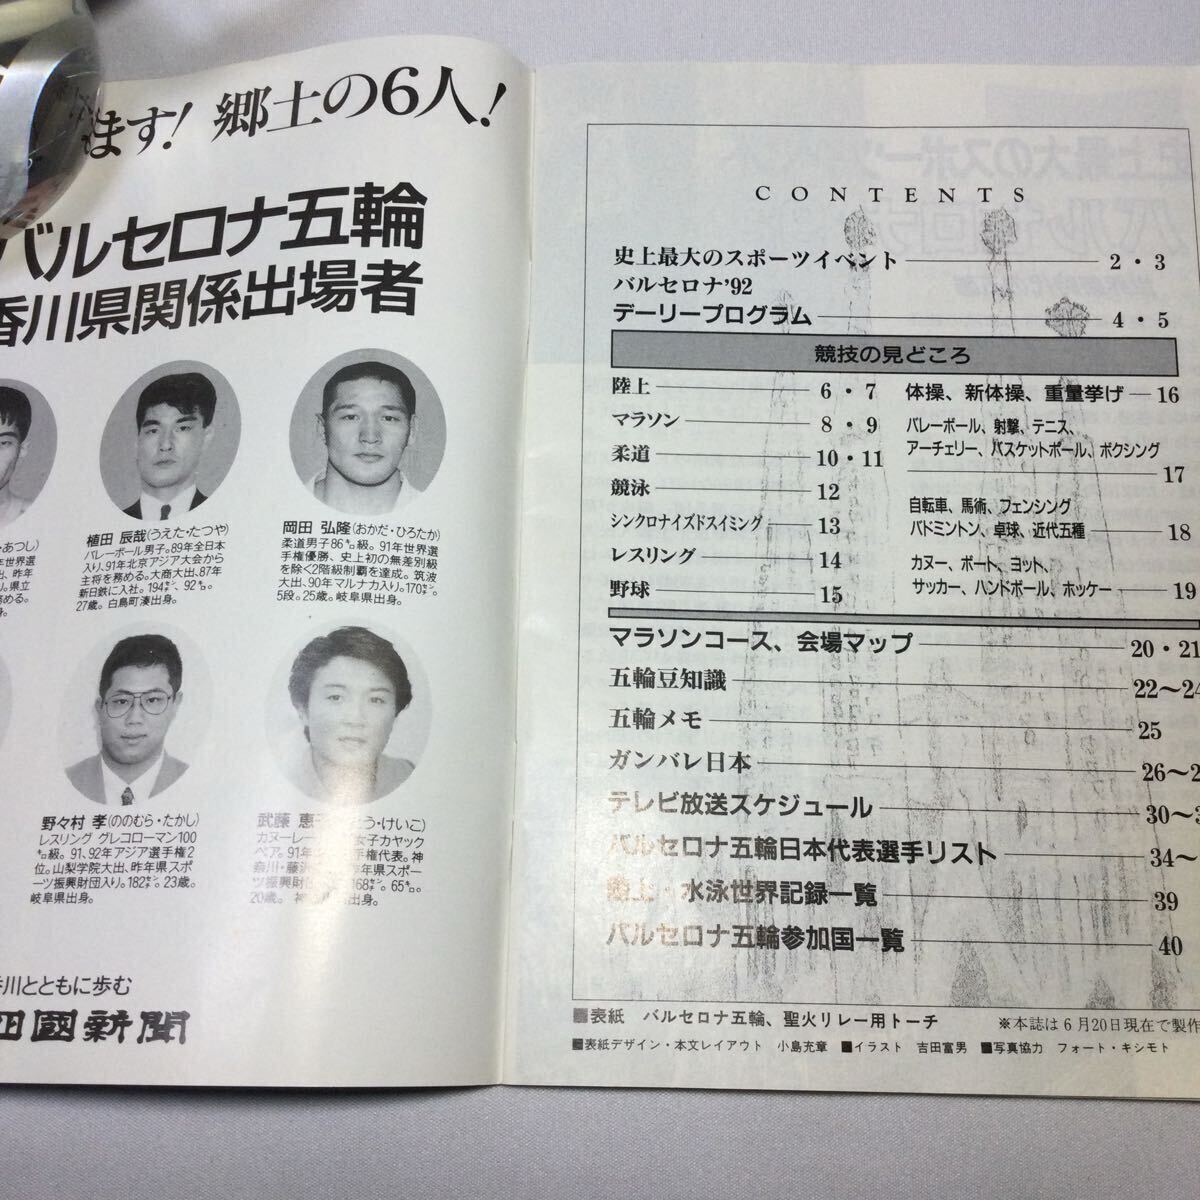 ます! 郷土の6人!
バルセロナ五輪
香川県関係出場者
・あつし)
植田 辰哉(うえた・たつや)
バレーボール男子。89年全日本
入り、91年北京アジア大会から
主将を務める。大商大出、87年
新日鉄に入社。194㌢、92㌔。
27歳。白鳥町湊出身。
岡田 弘隆(おかだ・ひろたか)
柔道男子86㌔級。91年世界選
手権優勝、史上初の無差別級
を除く2階級制覇を達成。筑波
大出、90年マルナカ入り。170㌢
5段。25歳。岐阜県出身。
野々村 孝(ののむら・たかし)
レスリング グレコローマン100
㌔級。91、92年アジア選手権2
位。山梨学院大出、昨年県スポ
ーツ振興財団入り。182㌢。23歳。
岐阜県出身。
武藤 恵 う・けいこ)
カヌーレー 女子カヤック
ペア。91年 手権代表。神
奈川・藤沢 昨年県スポー
ツ振興財団 168㌢。65㌔。
20歳。神 出身。
香川とともに歩む
四國新聞
CONTENTS
史上最大のスポーツイベント 2・3
バルセロナ'92
デーリープログラム 4・5
競技の見どころ
陸上 6・7
マラソン 8・9
柔道 10・11
競泳 12
シンクロナイズドスイミング 13
レスリング 14
野球 15
体操、新体操、重量挙げ 16
バレーボール、射撃、テニス、
アーチェリー、バスケットボール、ボクシング
17
自転車、馬術、フェンシング
バドミントン、卓球、近代五種 18
カヌー、ボート、ヨット、
サッカー、ハンドボール、ホッケー 19
マラソンコース、会場マップ 20・21
五輪豆知識 22〜24
五輪メモ 25
ガンバレ日本 26〜2
テレビ放送スケジュール 30〜3
バルセロナ五輪日本代表選手リスト 34〜
陸上・水泳世界記録一覧 39
バルセロナ五輪参加国一覧 40
■表紙 バルセロナ五輪、聖火リレー用トーチ
※本誌は6月20日現在で製作
■表紙デザイン・本文レイアウト 小島充章 ■イラスト 吉田富男 ■写真協力 フォート・キシモト